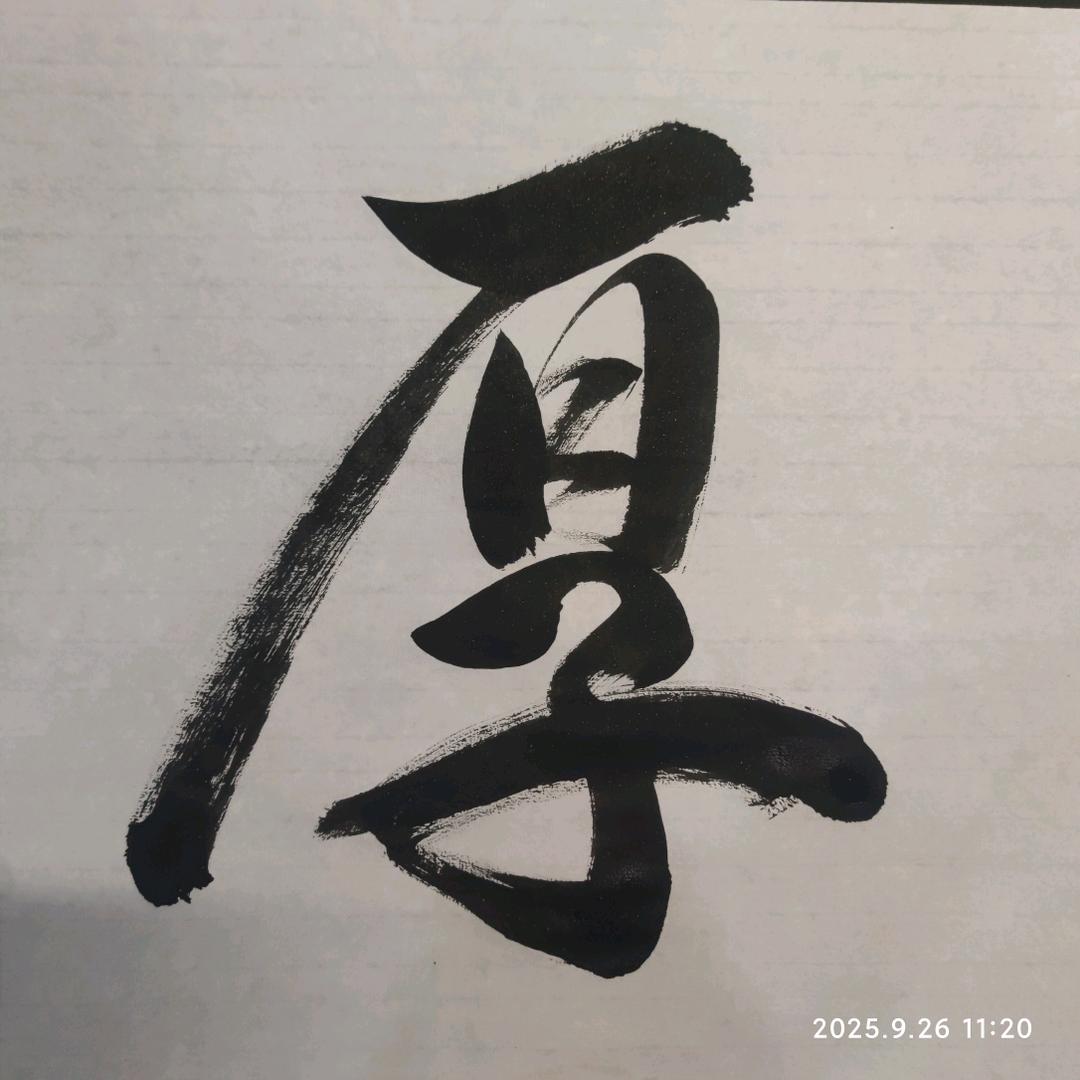 厚
2025.9.26 11:20